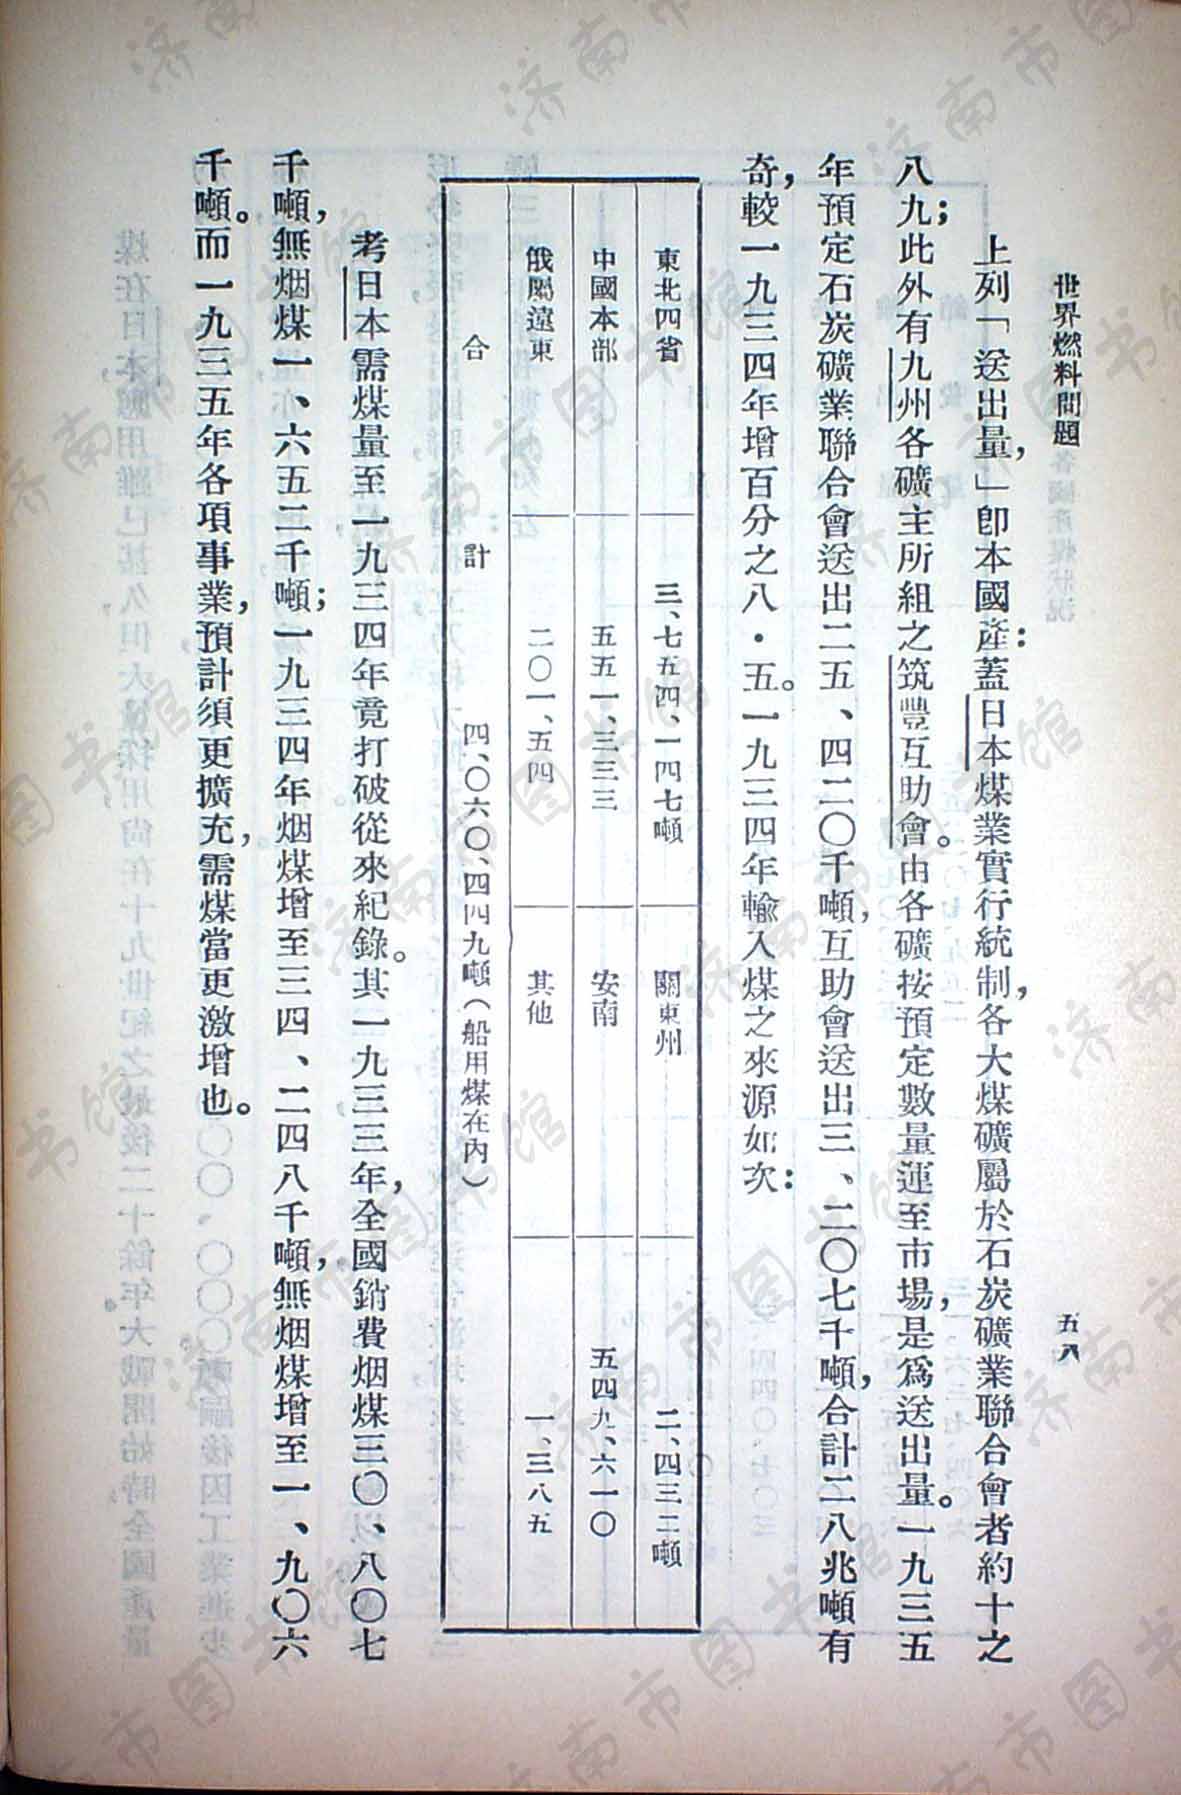 世界燃料問題
五八
上列「送出量，」卽本國產：蓋日本煤業實行統制，各大煤礦屬於石炭礦業聯合會者約十之
八九；此外有九州各礦主所組之筑豐互助會。由各礦按預定數量運至市場，是爲送出量。一九三五
年預定石炭礦業聯合會送出二五、四二〇千噸，互助會送出三、二〇七千噸，合計二八兆噸有
奇，較一九三四年增百分之八·五。一九三四年輸入煤之來源如次：
東北四省 三、七五四、一四七噸 關東州 二、四三二噸
中國本部 五五一、三三三 安南 五四九、六一〇
俄屬遠東 二〇一、五四 其他 一、三八五
合計 四、〇六〇、四四九噸（船用煤在內）
考日本需煤量至一九三四年竟打破從來紀錄。其一九三三年，全國銷費烟煤三〇、八〇七
千噸，無烟煤一、六五二千噸；一九三四年烟煤增至三四、二四八千噸，無烟煤增至一、九〇六
千噸。而一九三五年各項事業，預計須更擴充，需煤當更激增也。
济南市图书馆